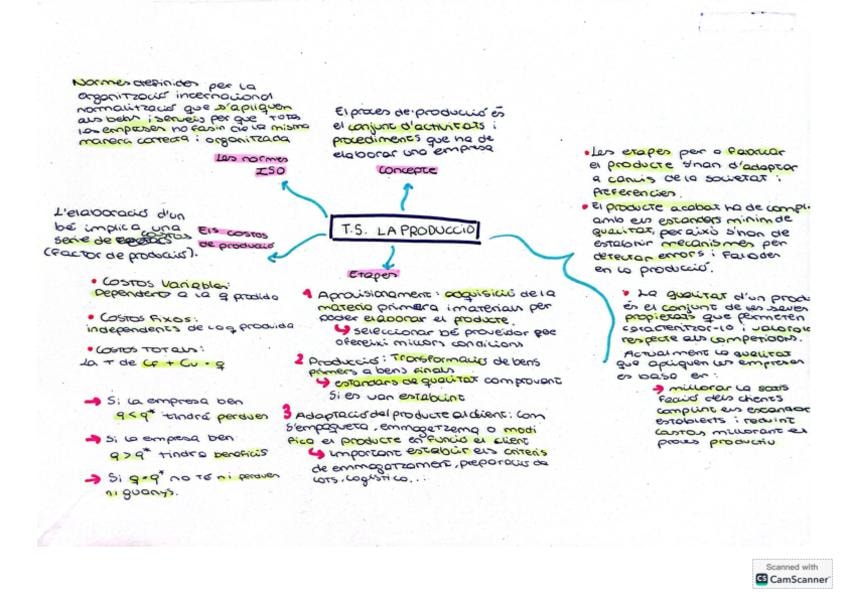 Normes definides per la
organització internacional
normalització que s'apliquen
als béns i serveis per que totes
les empreses ho fasin de la misma
manera correcta i organitzada
Les normes
ISO
El procés de producció és
el conjunt d'activitats i
procediments que ha de
elaborar una empresa
Concepte
T.5. LA PRODUCCIÓ
L'elaboració d'un
bé implica una
serie de costos
(Factor de producció).
Els costos
de producció
• Costos Variables:
Dependent a la q prodïda
• Costos Fixos:
independents de la q produida
• Costos TOTALS:
La T de CF + CV · q
→ Si la empresa ben
q < q* tindrá perdues
→ Si la empresa ben
q > q* tindra beneficis
→ Si q = q* no té ni perdues
ni guanys.
Etapes
1 Aprovisionament: adquisició de la
materia primera i materials per
poder elaborar el producte.
↳ Seleccionar bé proveidor que
ofereixi millors condicions
2 Producció: Transformació de bens
primers a bens finals
↳ estandars de qualitat comprovant
Si es van establint
3 Adaptació del producte al client: com
s'empaqueta, emmogatzema o modi
fica el producte en funció el client
↳ important establir els criteris
de emmogatzament, preparació de
lots, logistica...
• Les etapes per a fabricar
el producte s'han d'adaptar
a canvis de la societat i
preferencies.
• El producte acabat ha de compli
amb els estandars minim de
qualitat, per això s'han de
establir mecanismes per
detectar errors i falades
en la producció.
• La qualitat d'un produ
és el conjunt de les seves
propietats que permeten
caracteritzar-lo i valora
respecte als competidors.
Actualment la qualitat
que apliquen les empreses
es basa en:
→ millorar la satis
facció dels clients
complint els estandar
establerts i reduint
costos millorant el
procés productiu
Scanned with
CS CamScanner